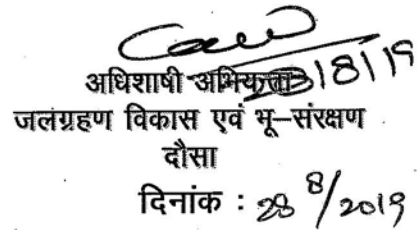 अधिशाषी अभियन्ता
जलग्रहण विकास एवं भू–संरक्षण
दौसा
दिनांक : 28 8/2019